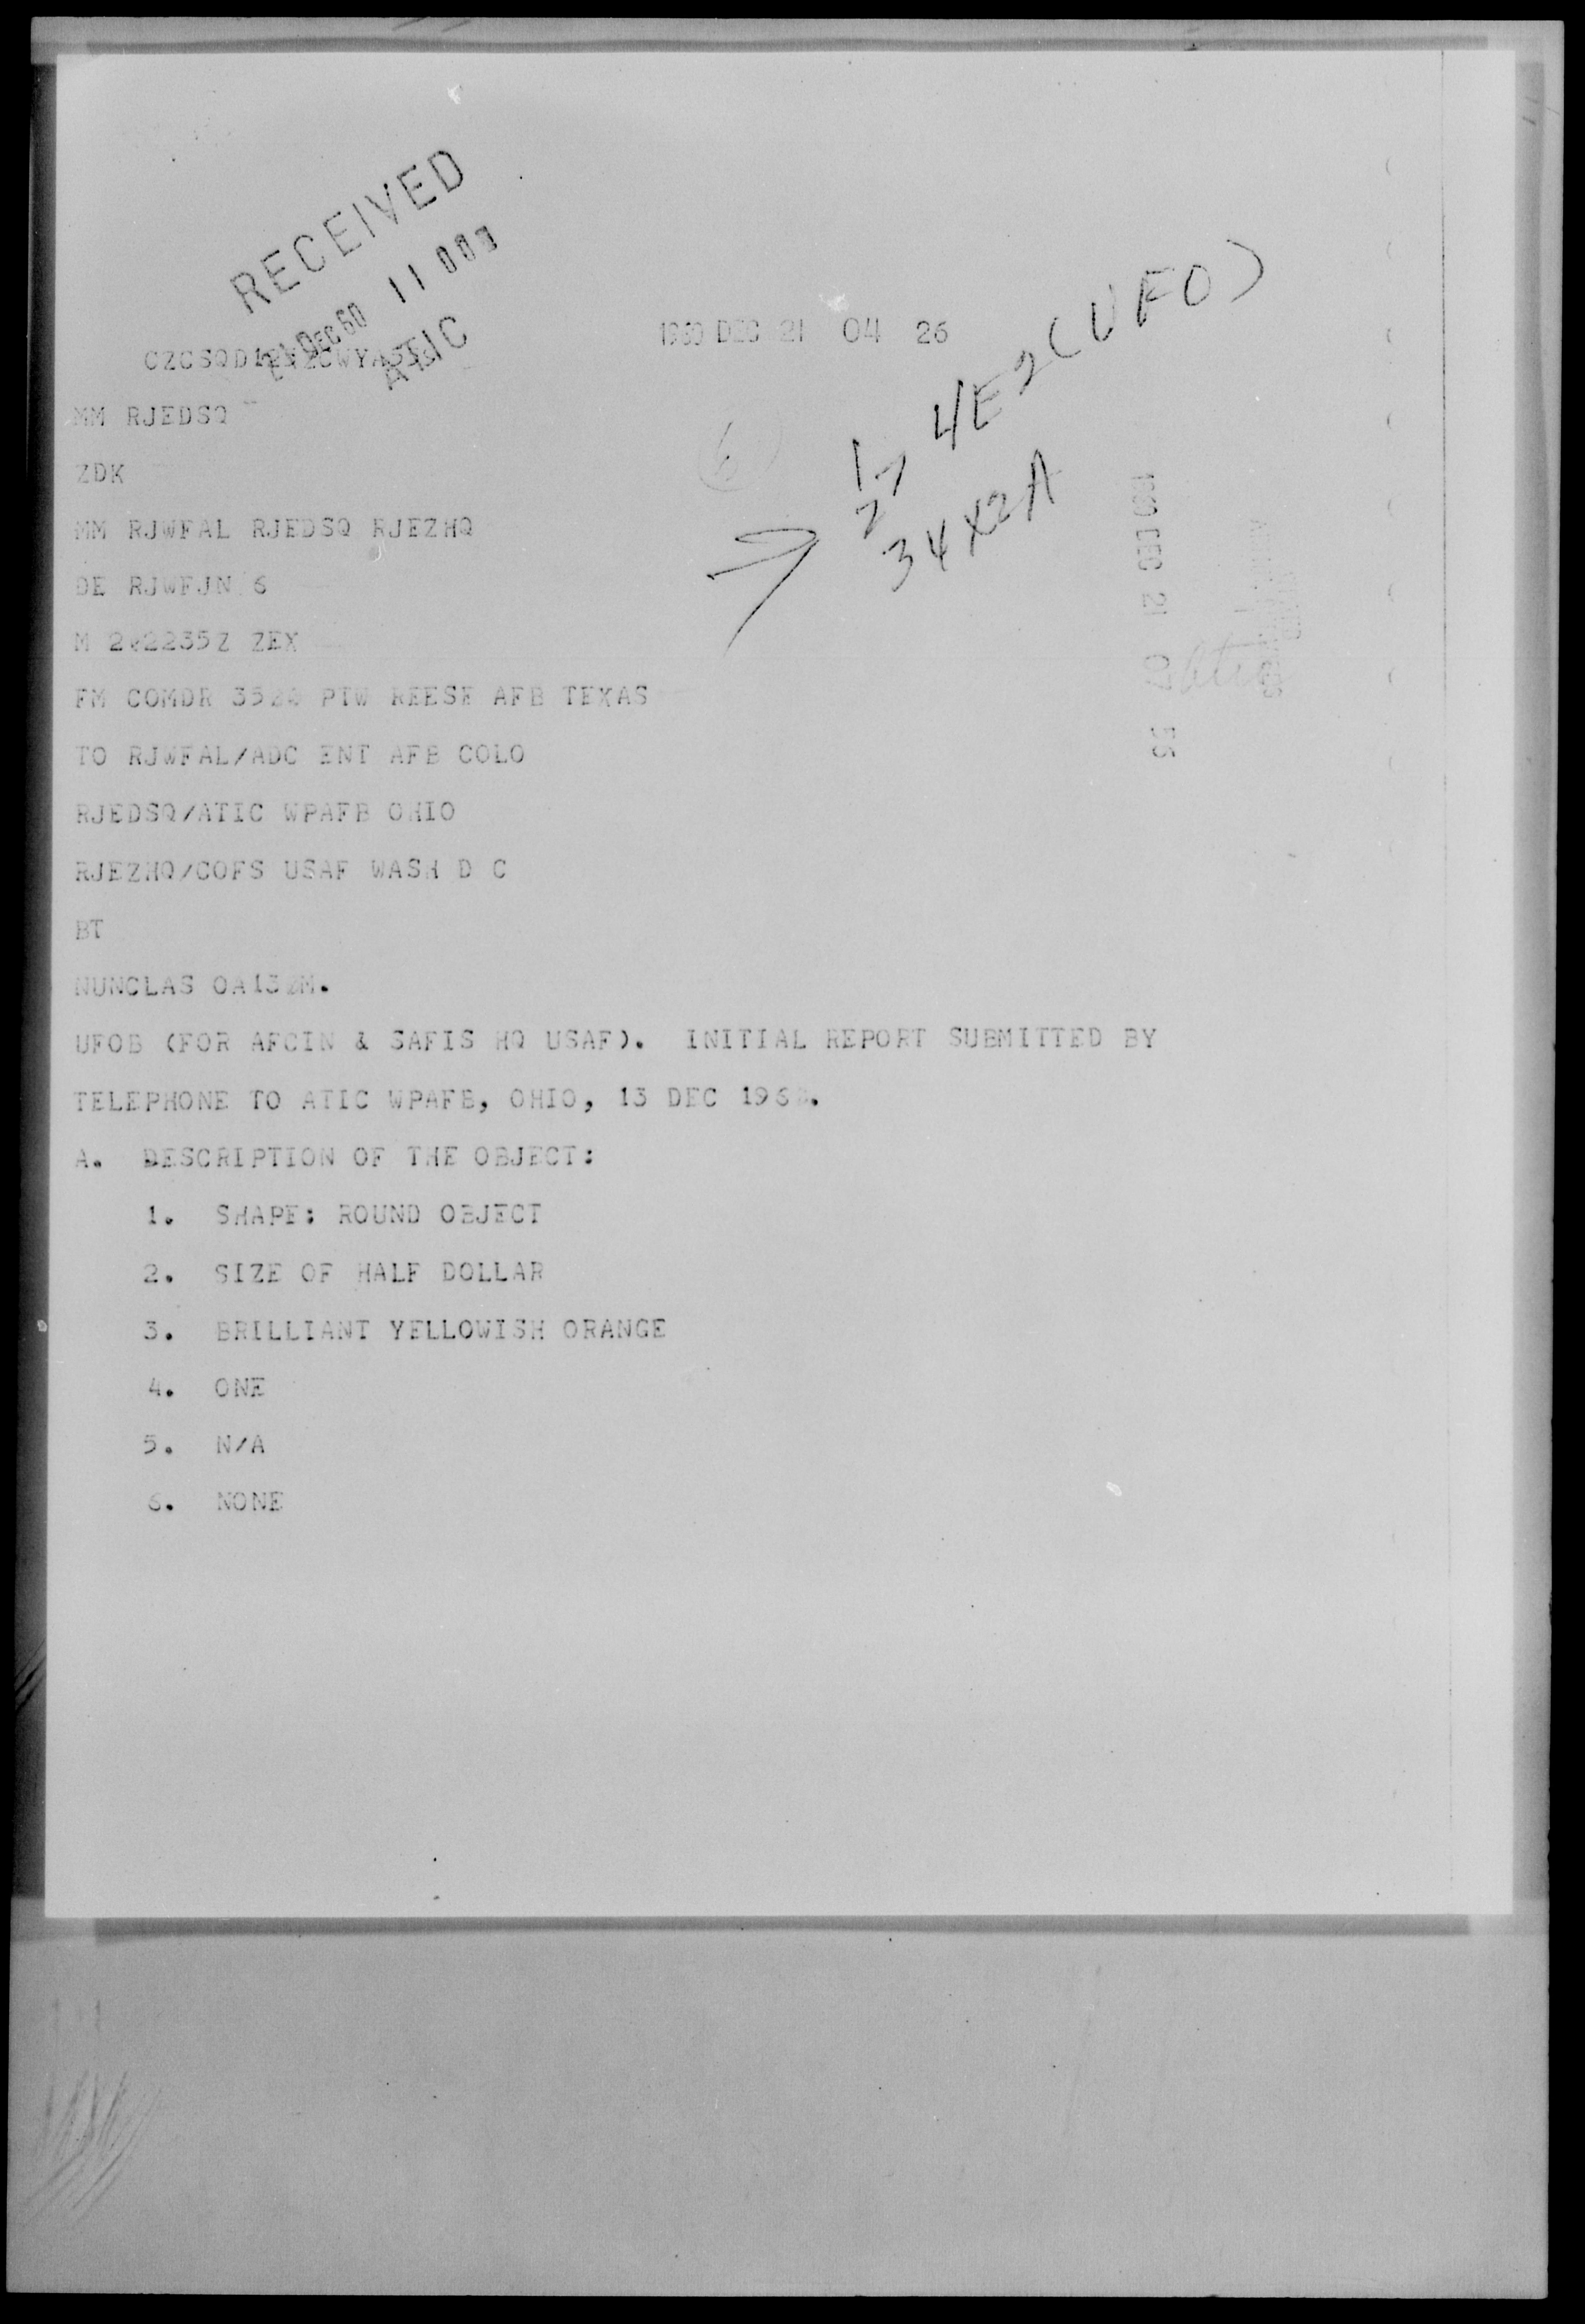 RECEIVED
21 DEC 60 11 00
ATIC
1960 DEC 21 04 26
4E2(UFO)
34X2A
6
1960 DEC 21 56
MM RJEDSQ
ZDK
MM RJWFAL RJEDSQ RJEZHQ
DE RJWFJN 6
M 202235Z ZEX
FM COMDR 3520 PTW REESE AFB TEXAS
TO RJWFAL/ADC ENT AFB COLO
RJEDSQ/ATIC WPAFB OHIO
RJEZHQ/COFS USAF WASH D C
BT
NUNCLAS OA130M.
UFOB (FOR AFCIN & SAFIS HQ USAF). INITIAL REPORT SUBMITTED BY
TELEPHONE TO ATIC WPAFB, OHIO, 13 DEC 1960.
A. DESCRIPTION OF THE OBJECT:
1. SHAPE: ROUND OBJECT
2. SIZE OF HALF DOLLAR
3. BRILLIANT YELLOWISH ORANGE
4. ONE
5. N/A
6. NONE